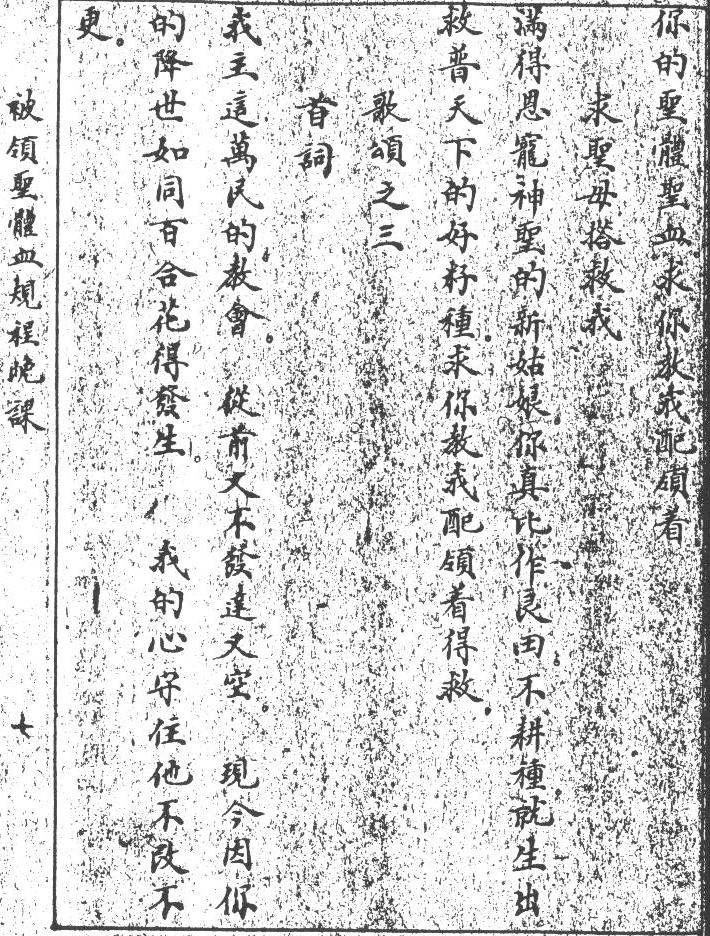 你的聖體聖血求你教我配領着
求聖母搭救我
滿得恩寵神聖的新姑娘你真比作良田。不耕種。就生出
救普天下的好籽種。求你教我配領着得救。
歌頌之三
首詞
我主這萬民的教會。從前又不發達又空。現今因你
的降世如同百合花得發生。我的心守住他不改不
更。
被領聖體血規程晚課
七